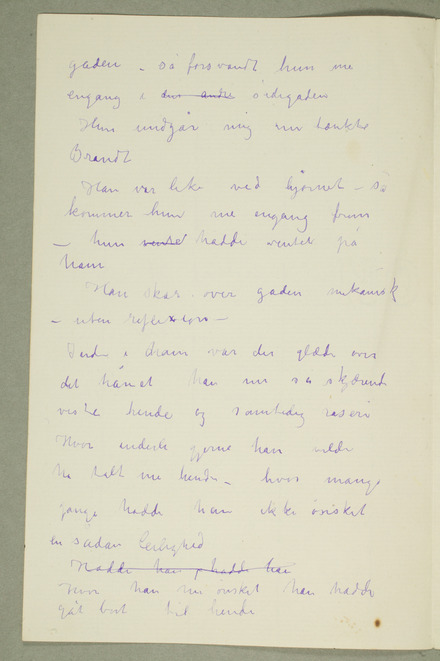 gaden – så forsvandt hun me
engang i den andre sidegaden
Hun undgår mig nu tænkte
Brandt
Han var like ved hjørnet – så
kommer hun me engang frem
– hun vented hadde ventet på
ham
Han skar over gaden mekanisk
– uten reflexion –
Inde i ham var der glæde over
det hånet han nu så skjærende
viste hende og samtidig raseri
Hvor inderli gjerne han vilde
ha talt me hende – hvor mange
gange hadde han ikke ønsket
en sådan leilighed
Hadde han, hadde han
Hvor han nu ønsket han hadde
gåt bort til hende